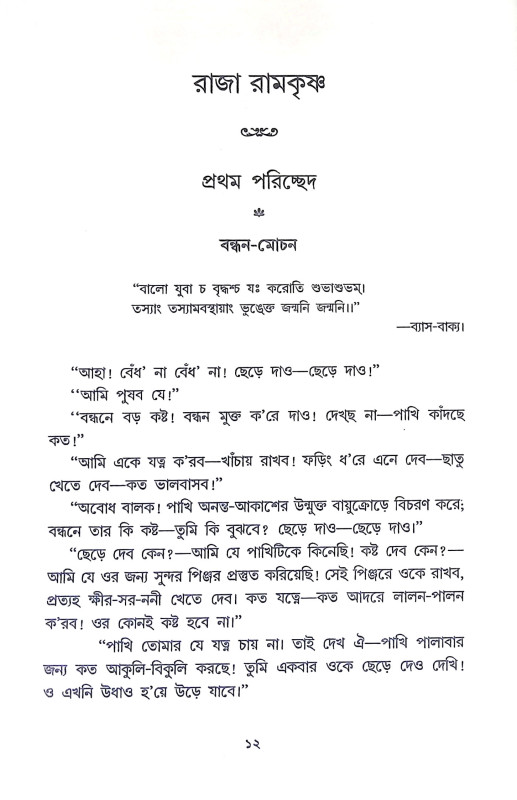 রাজা রামকৃষ্ণ
প্রথম পরিচ্ছেদ
বন্ধন-মোচন
“বালো যুবা চ বৃদ্ধশ্চ যঃ করোতি শুভাশুভম্।
তস্যাং তস্যামবস্থায়াং ভুঙ্ক্তে জন্মনি জন্মনি।।”
—ব্যাস-বাক্য।
“আহা! বেঁধ’ না বেঁধ’ না! ছেড়ে দাও—ছেড়ে দাও!”
‘‘আমি পুষব যে!”
‘‘বন্ধনে বড় কষ্ট! বন্ধন মুক্ত ক’রে দাও! দেখ্ছ না—পাখি কাঁদছে
কত!”
“আমি একে যত্ন ক’রব—খাঁচায় রাখব! ফড়িং ধ’রে এনে দেব—ছাতু
খেতে দেব—কত ভালবাসব!”
“অবোধ বালক! পাখি অনন্ত-আকাশের উন্মুক্ত বায়ুক্রোড়ে বিচরণ করে;
বন্ধনে তার কি কষ্ট—তুমি কি বুঝবে? ছেড়ে দাও—ছেড়ে দাও।”
“ছেড়ে দেব কেন?—আমি যে পাখিটিকে কিনেছি! কষ্ট দেব কেন?—
আমি যে ওর জন্য সুন্দর পিঞ্জর প্রস্তুত করিয়েছি! সেই পিঞ্জরে ওকে রাখব,
প্রত্যহ ক্ষীর-সর-ননী খেতে দেব। কত যত্নে—কত আদরে লালন-পালন
ক’রব! ওর কোনই কষ্ট হবে না।”
“পাখি তোমার যে যত্ন চায় না। তাই দেখ ঐ—পাখি পালাবার
জন্য কত আকুলি-বিকুলি করছে! তুমি একবার ওকে ছেড়ে দেও দেখি!
ও এখনি উধাও হ’য়ে উড়ে যাবে।”
১২